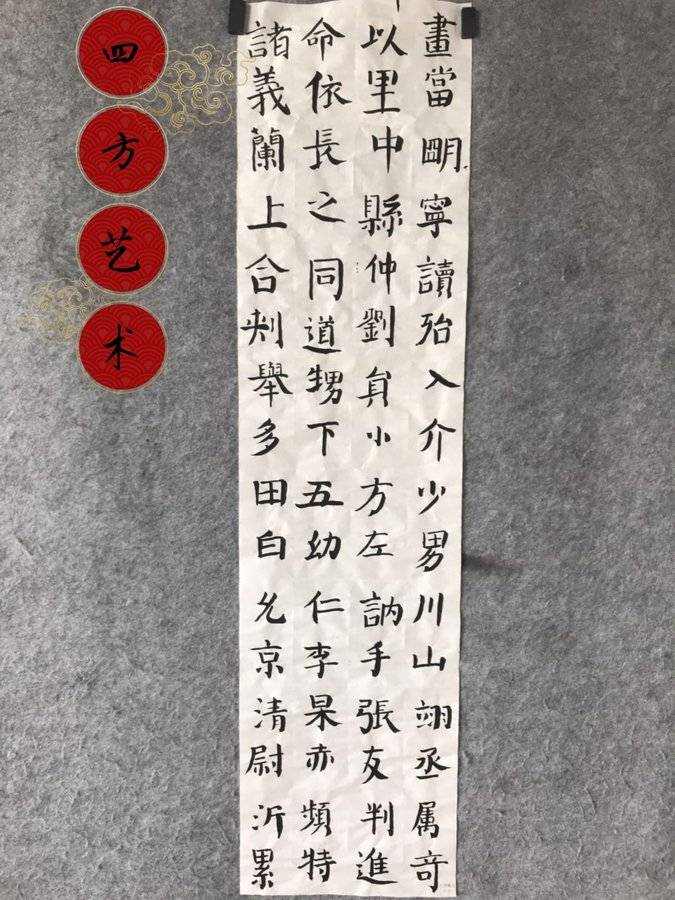 畫當朙寧讀殆入介少男川山翊丞属竒
以里中縣仲劉貟小方左訥手張友判進
命依長之同道甥下五幼仁李杲亦頻特
諸義蘭上合刾舉多田白允京清尉沂累
四方艺术